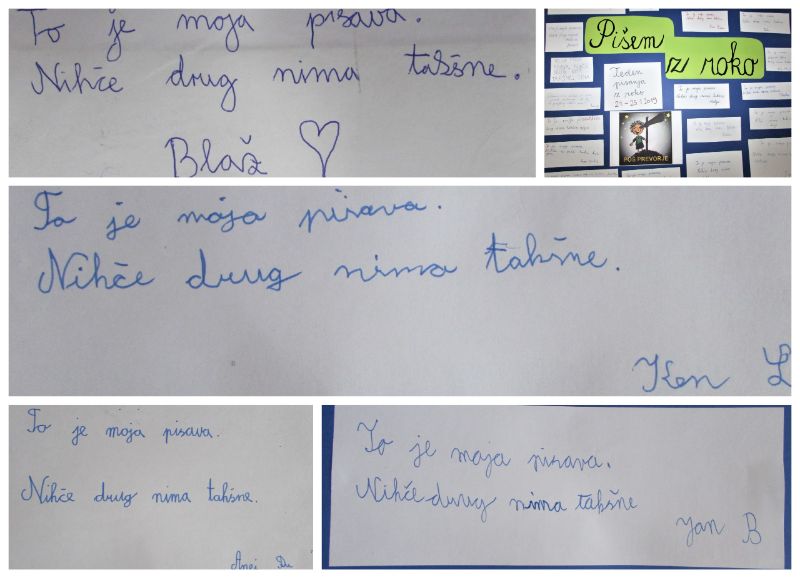 To je moja pisava.
Nihče drug nima takšne.
Blaž
Pišem
z roko
Teden
pisanja
z roko
21.-25.1.2019
POŠ PREVORJE
To je moja pisava.
Nihče drug nima takšne.
Ken L
To je moja pisava.
Nihče drug nima takšne.
Anej
To je moja pisava.
Nihče drug nima takšne
Jan B